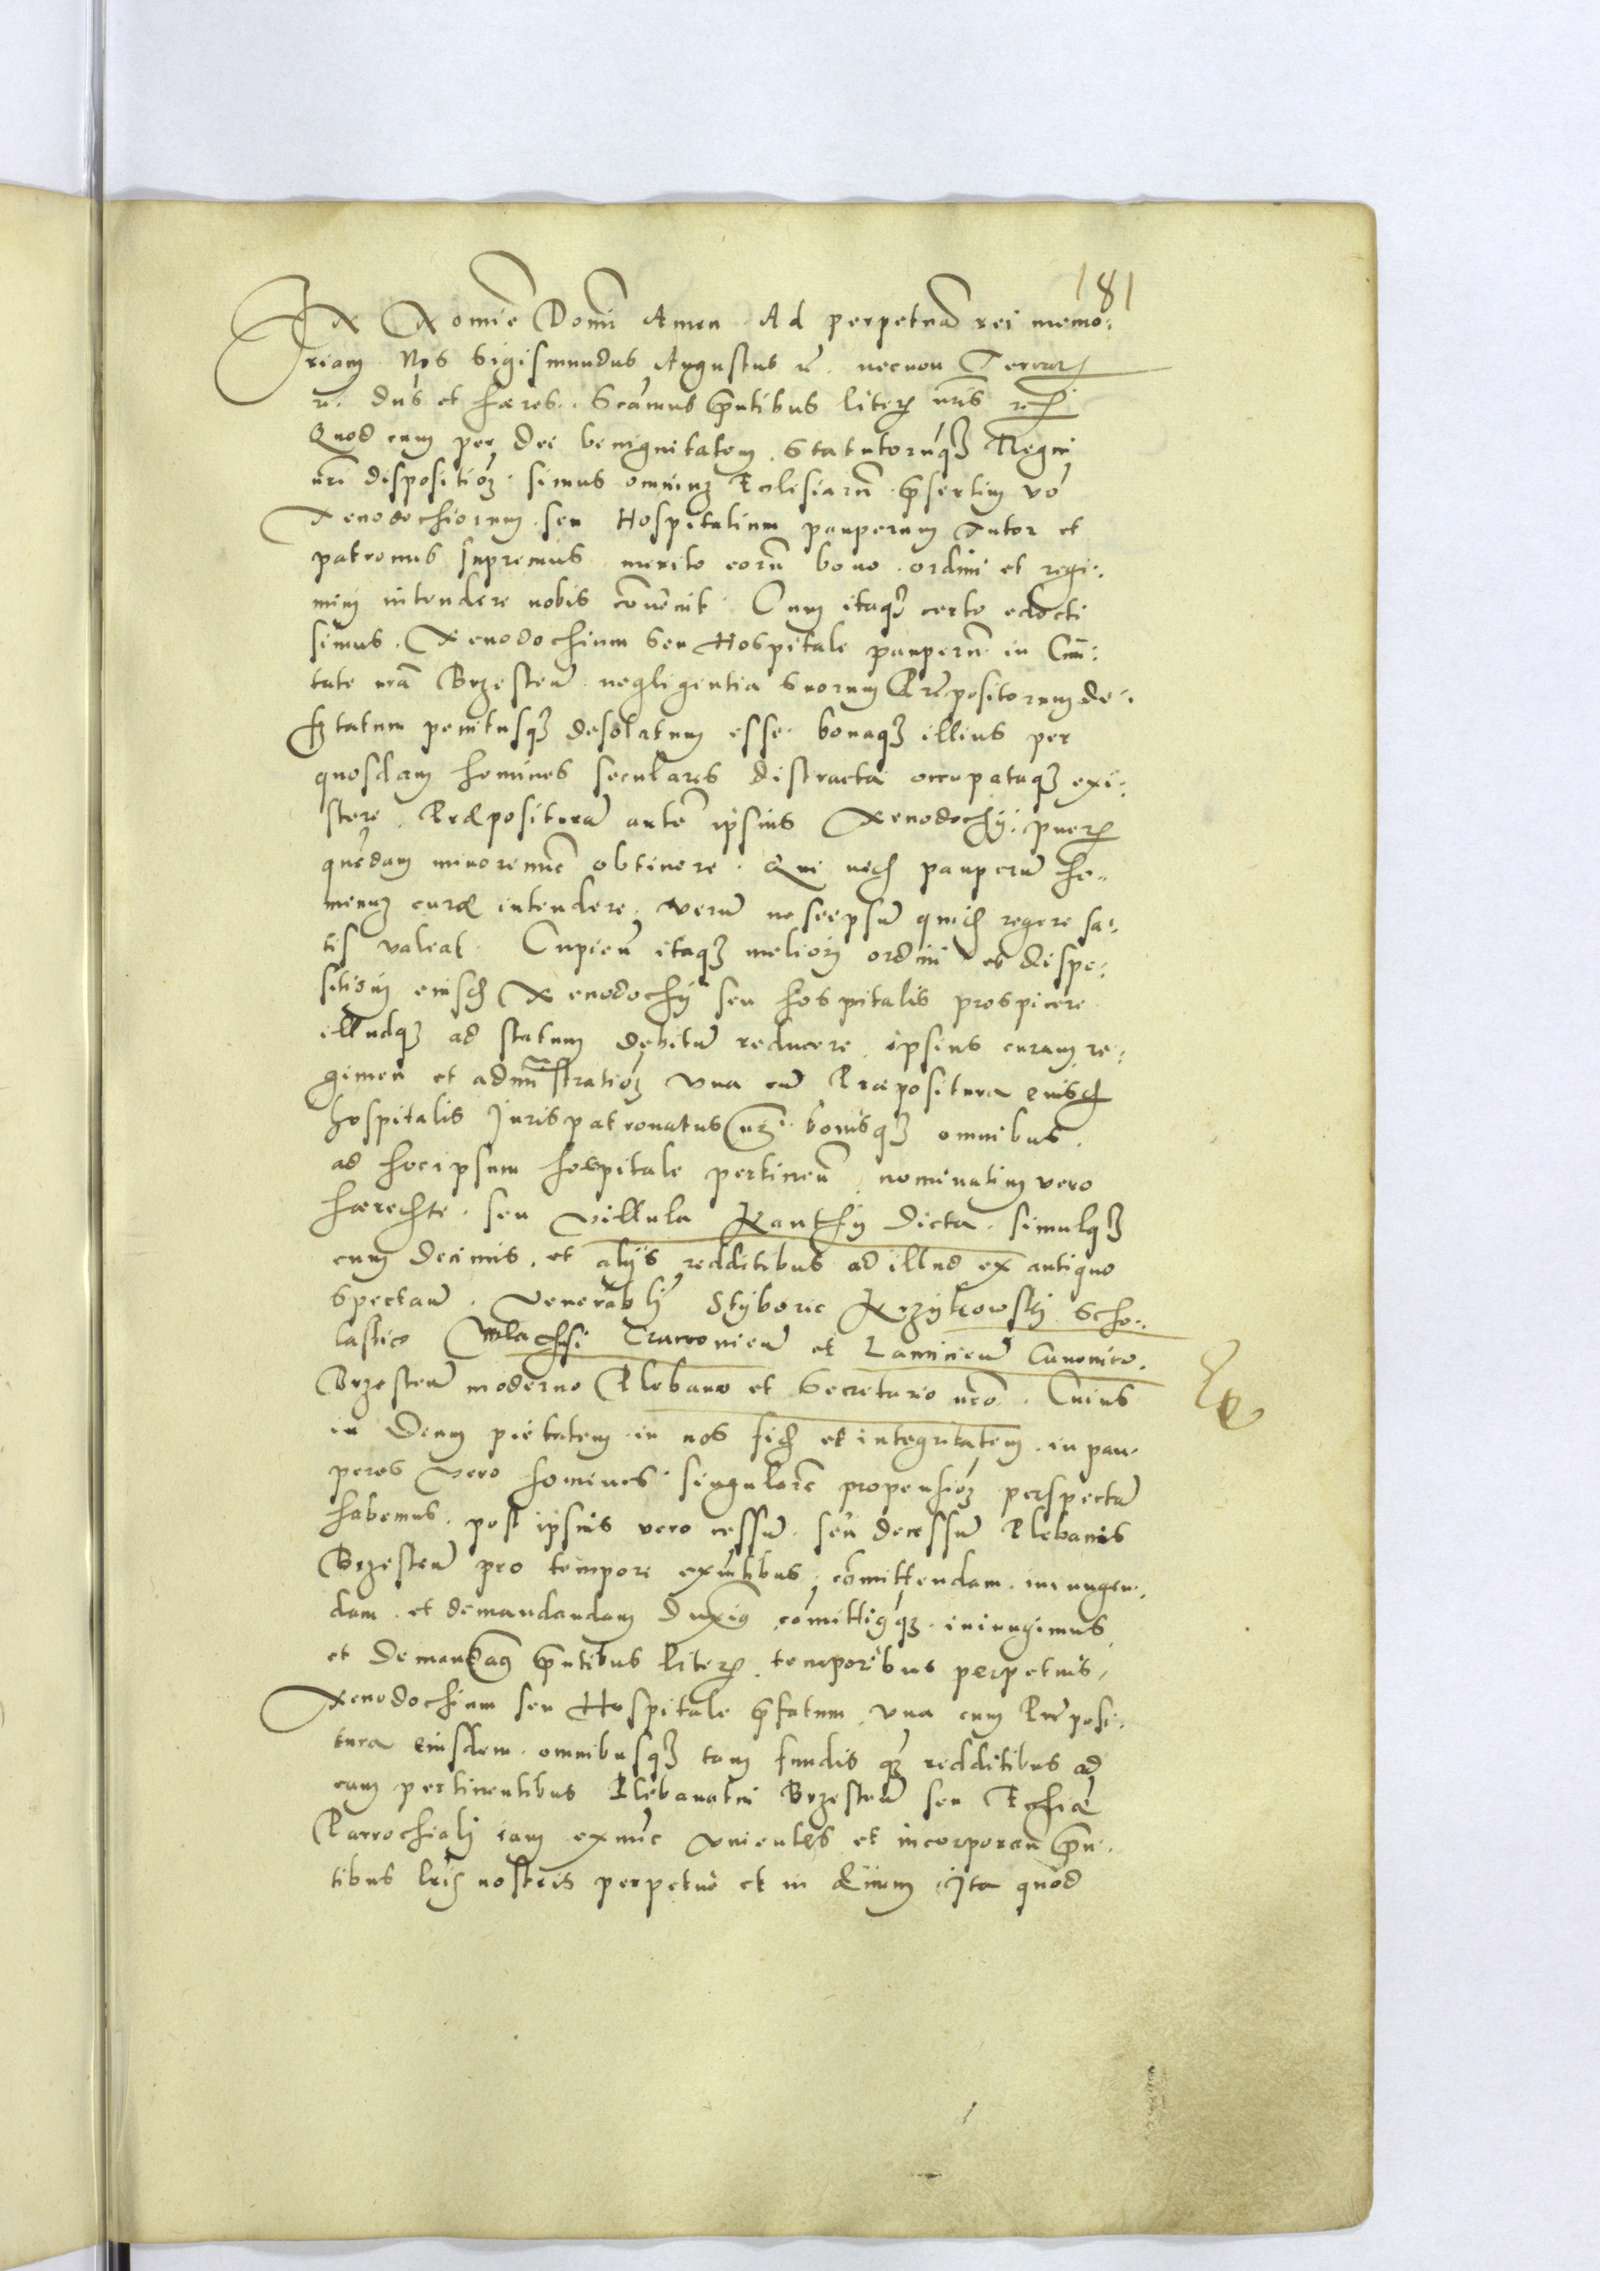 181
In Nomīe Domī Amen. Ad perpetuā rei memo:
riam. Nos Sigismundus Augustus rē. necnon Terrar
rē. dūs et hæres. Scāmus pñtibus literis nris
Quod cum per Dei benignitatem Statutorūq3 Regni
nri dispositiōē simus omnium Eclesiarū pñsertim vō
Xenodochiorum seu Hospitalium pauperum Tutor et
patronus supremus merito eorū bono ordini et regi:
mini intendere nobis cōvenit. Cum itaq3 certo edocti
simus. Xenodochium Seu Hospitale pauperū in Civi:
tate nrā Brzesteñ negligentia suorum Præpositorum de:
statum penitusq3 desolatum esse. bonaq3 illius per
quosdam homines seculares distracta occupataq3 exi:
stere. Præposituram autē ipsius Xenodochij. puerū
quēdam minorennē obtinere. Qui neq3 pauperū ho:
minum curæ intendere. verū ne seipsū quidē regere sa:
tis valeat. Cupieñ itaq3 meliori ordini et dispo:
sitioni eiusdē Xenodochij seu hospitalis prospicere
illudq3 ad statum debitū reducere. ipsius curam re:
gimen et admīstratiōē vna cū Præpositura eiusdē
hospitalis Jurispatronatus nr̄i. bonisq3 omnibus.
ad hocipsum hospitale pertineñ. nominatim vero
hærechte. seu villula Kanthy dicta. simulq3
cum decimis. et alijs redditibus ad illud ex antiquo
Spectañ. Venerabili Styborio Krzykowsky Scho:
lastico Cracovieñ et Lanicieñ Canonico.
Brzesteñ moderno Plebano et Secretario nrō. Cuius
in Deum pietatem in nos fidē et integritatem. in pau:
peres vero homines singularē propensiōē perspectā
habemus. post ipsius vero cessū. seu decessū Plebanis
Brzesteñ pro tempore exñtibus. cōmittendam. iniungen:
dam. et demandandam duxim9 cōmittim9q3. iniungimus
et demandam9 pñtibus literis. temporibus perpetuis.
Xenodochium seu Hospitale pfatum. vna cum Præposi:
tura eiusdem. omnibusq3 tam fundis q3 redditibus ad
eam pertinentibus Plebanatui Brzesteñ seu Ecchiæ
Parrochiali iam exnūc vnientes et incorporañ pñ:
tibus lris nostris perpetuo et in æuum. ita quod